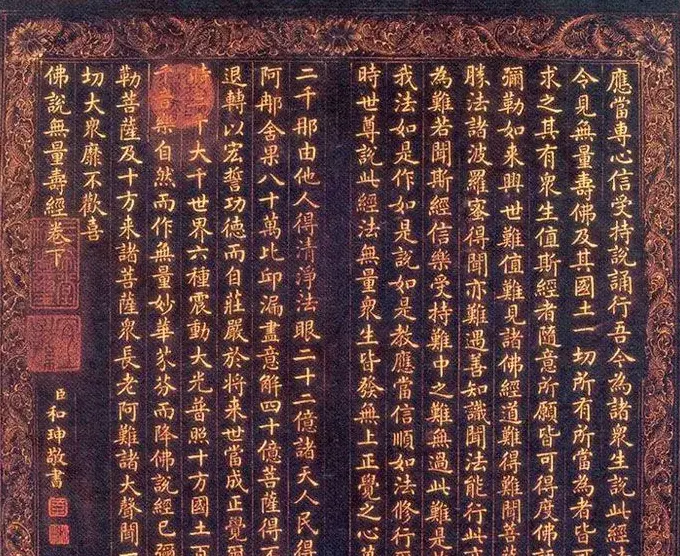 應當專心信受持說誦行吾今為諸衆生說此經
今見無量壽佛及其國土一切所有所當為者皆可
求之其有衆生值斯經者隨意所願皆可得度佛
彌勒如來興世難值難見諸佛經道難得難聞菩
勝法諸波羅蜜得聞亦難遇善知識聞法能行此
為難若聞斯經信樂受持難中之難無過此難是
我法如是作如是說如是教應當信順如法修行
時世尊說此經法無量衆生皆發無上正覺之心
二千那由他人得清淨法眼二十二億諸天人民得
阿那舍果八十萬比邱漏盡意解四十億菩薩得不
退轉以宏誓功德而自莊嚴於将来世當成正覺爾
時三千大千世界六種震動大光普照十方國土百
千音樂自然而作無量妙華芬芬而降佛說經已彌
勒菩薩及十方来諸菩薩衆長老阿難諸大聲聞一
切大衆靡不歡喜
佛說無量壽經卷下
臣和珅敬書